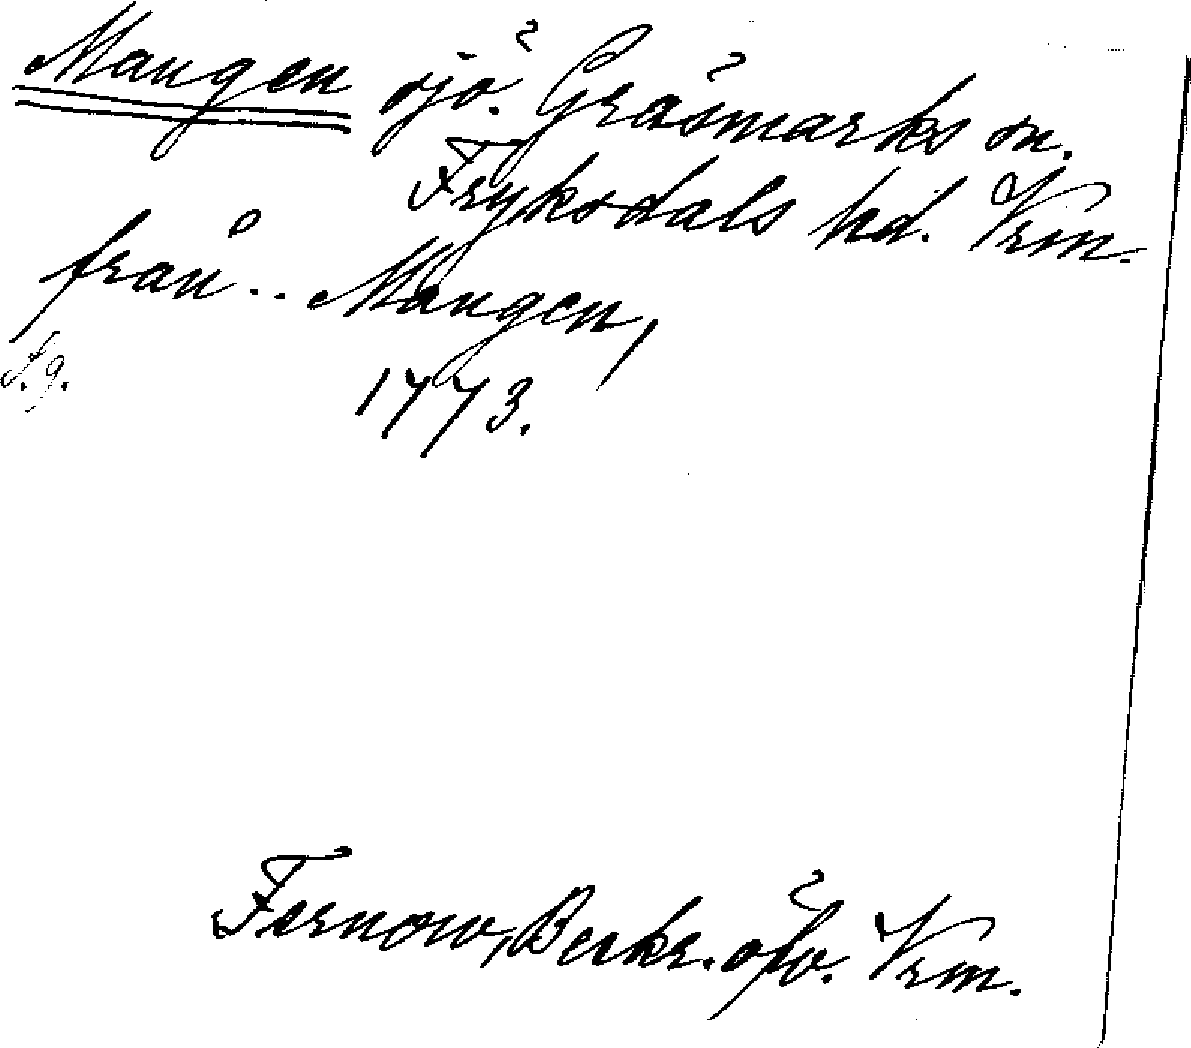 Mangen sjö. Gräsmarks sn.
Fryksdals hd. Vrm.
från.. Mangen,
S.g.
1773.
Fernow, Beskr. öfv. Vrm.